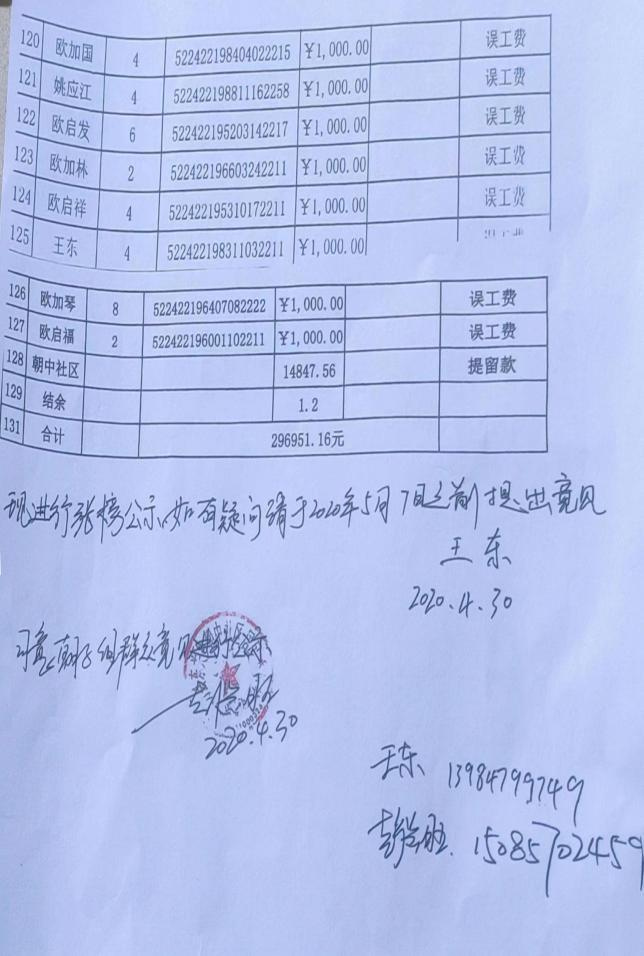 120 欧加国 4 522422198404022215 ¥1,000.00 误工费
121 姚应江 4 522422198811162258 ¥1,000.00 误工费
122 欧启发 6 522422195203142217 ¥1,000.00 误工费
123 欧加林 2 522422196603242211 ¥1,000.00 误工费
124 欧启祥 4 522422195310172211 ¥1,000.00 误工费
125 王东 4 522422198311032211 ¥1,000.00
126 欧加琴 8 522422196407082222 ¥1,000.00 误工费
127 欧启福 2 522422196001102211 ¥1,000.00 误工费
128 朝中社区 14847.56 提留款
129 结余 1.2
131 合计 296951.16元
现进行张榜公示,如有疑问请于2020年5月7日之前提出意见
王东
2020.4.30
同意 组群众意见进行公示
2020.4.30
王东 13984799749
15085702459